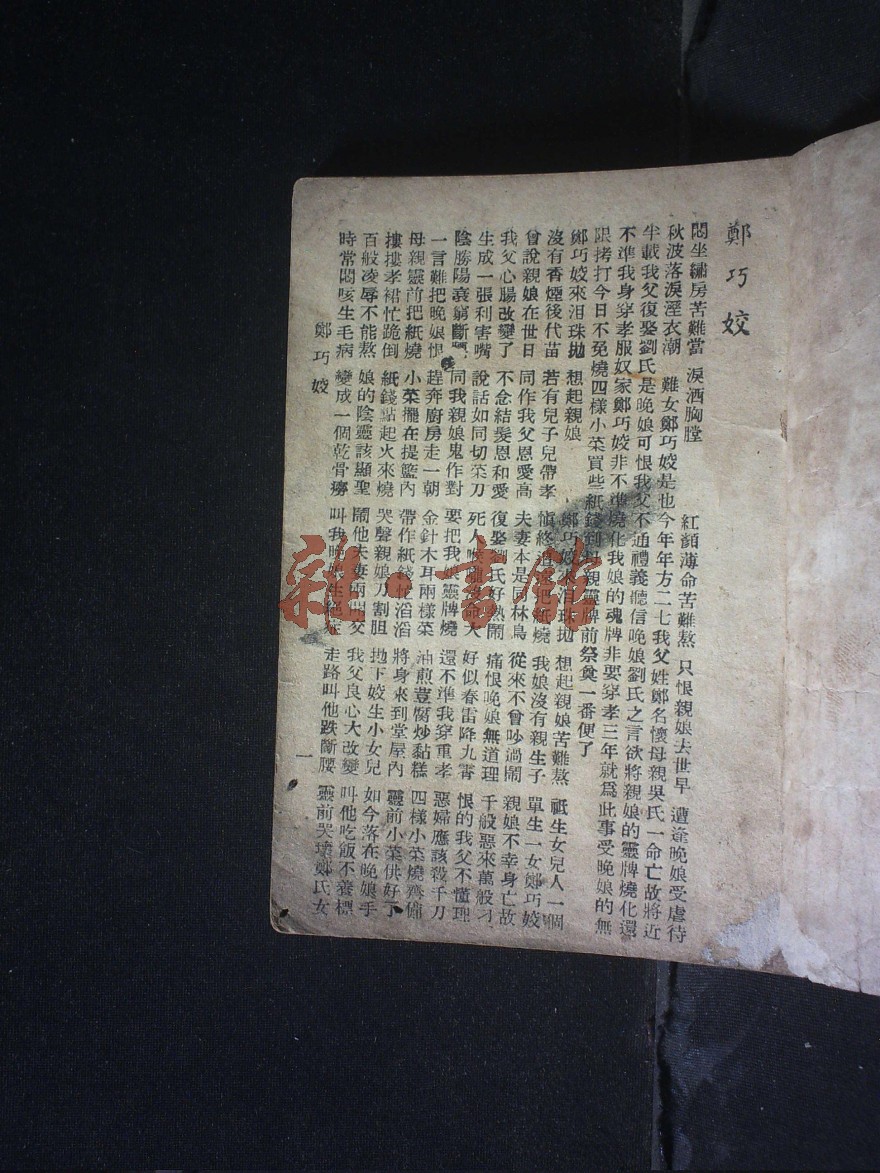 鄭巧姣
悶坐繡房苦難當 淚洒胸膛 紅顏薄命苦難熬 只恨親娘去世早 遭逢晚娘受虐待
秋波落淚溼衣潮 難女鄭巧姣是也今年年方二七我父姓鄭名懷母親吳氏一命亡故將近
半載我父復娶劉氏是晚娘可恨我父不通禮義聽信晚娘劉氏之言欲將親娘的靈牌燒化還
不準我身穿孝服奴家鄭巧姣非不準燒化我娘的魂牌非要穿孝三年就爲此事受晚娘的無
限拷打今日不免燒四樣小菜買些紙錢到母親靈牌前祭奠一番便了
鄭巧姣來泪珠拋 想起親娘 鄭巧姣來泪珠拋 想起親娘苦難熬 祇生女兒人一個
沒有香煙後代苗 若有兒子兒帶孝 愼終追遠把紙燒 我娘沒有親生子 單生一女鄭巧姣
曾說親娘在世日 同作我父恩愛高 夫妻本是同林鳥 從來不曾吵過鬧 親娘不幸身亡故
我父心腸改變了 不念結髮恩和愛 復娶劉氏好熱鬧 痛恨晚娘無道理 千般惡來萬般刁
生成一張利害嘴 說話如同切菜刀 死人喉嚨 命大 好似春雷降九霄 恨的我父不懂理
陰勝陽衰窮斷 同我親娘鬼作對 要把我娘靈牌燒 還不準我穿重孝 惡婦應該殺千刀
一言難把晚娘恨 趕奔廚房走一朝 金針木耳兩樣菜 油煎荳腐炒黏糕 四樣小菜燒齊備
母親靈前把紙燒 小菜擺在提籃內 帶作紙錢忙滔滔 將身來到堂屋內 靈前小菜供好了
摟摟孝裙忙跪倒 紙錢點起火來燒 哭聲親娘刀割胆 拋下姣生小女兒 如今落在晚娘手
百般凌辱不能熬 娘的陰靈該顯聖 鬧他夫妻兩開交 我父良心大改變 叫他吃飯不養標
時常悶咳生毛病 變成一個乾骨癆 叫我晚娘生絕症 走路叫他跌斷腰 靈前哭壞鄭氏女
鄭巧姣
一
雜·書館